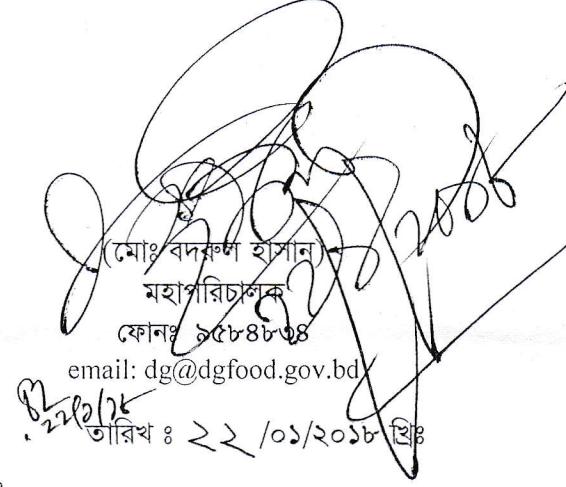 (মোঃ বদরুল হাসান)
মহাপরিচালক
ফোনঃ ৯৫৮৪৮৩৪
email: dg@dgfood.gov.bd
তারিখ ঃ ২২ /০১/২০১৮ খ্রিঃ